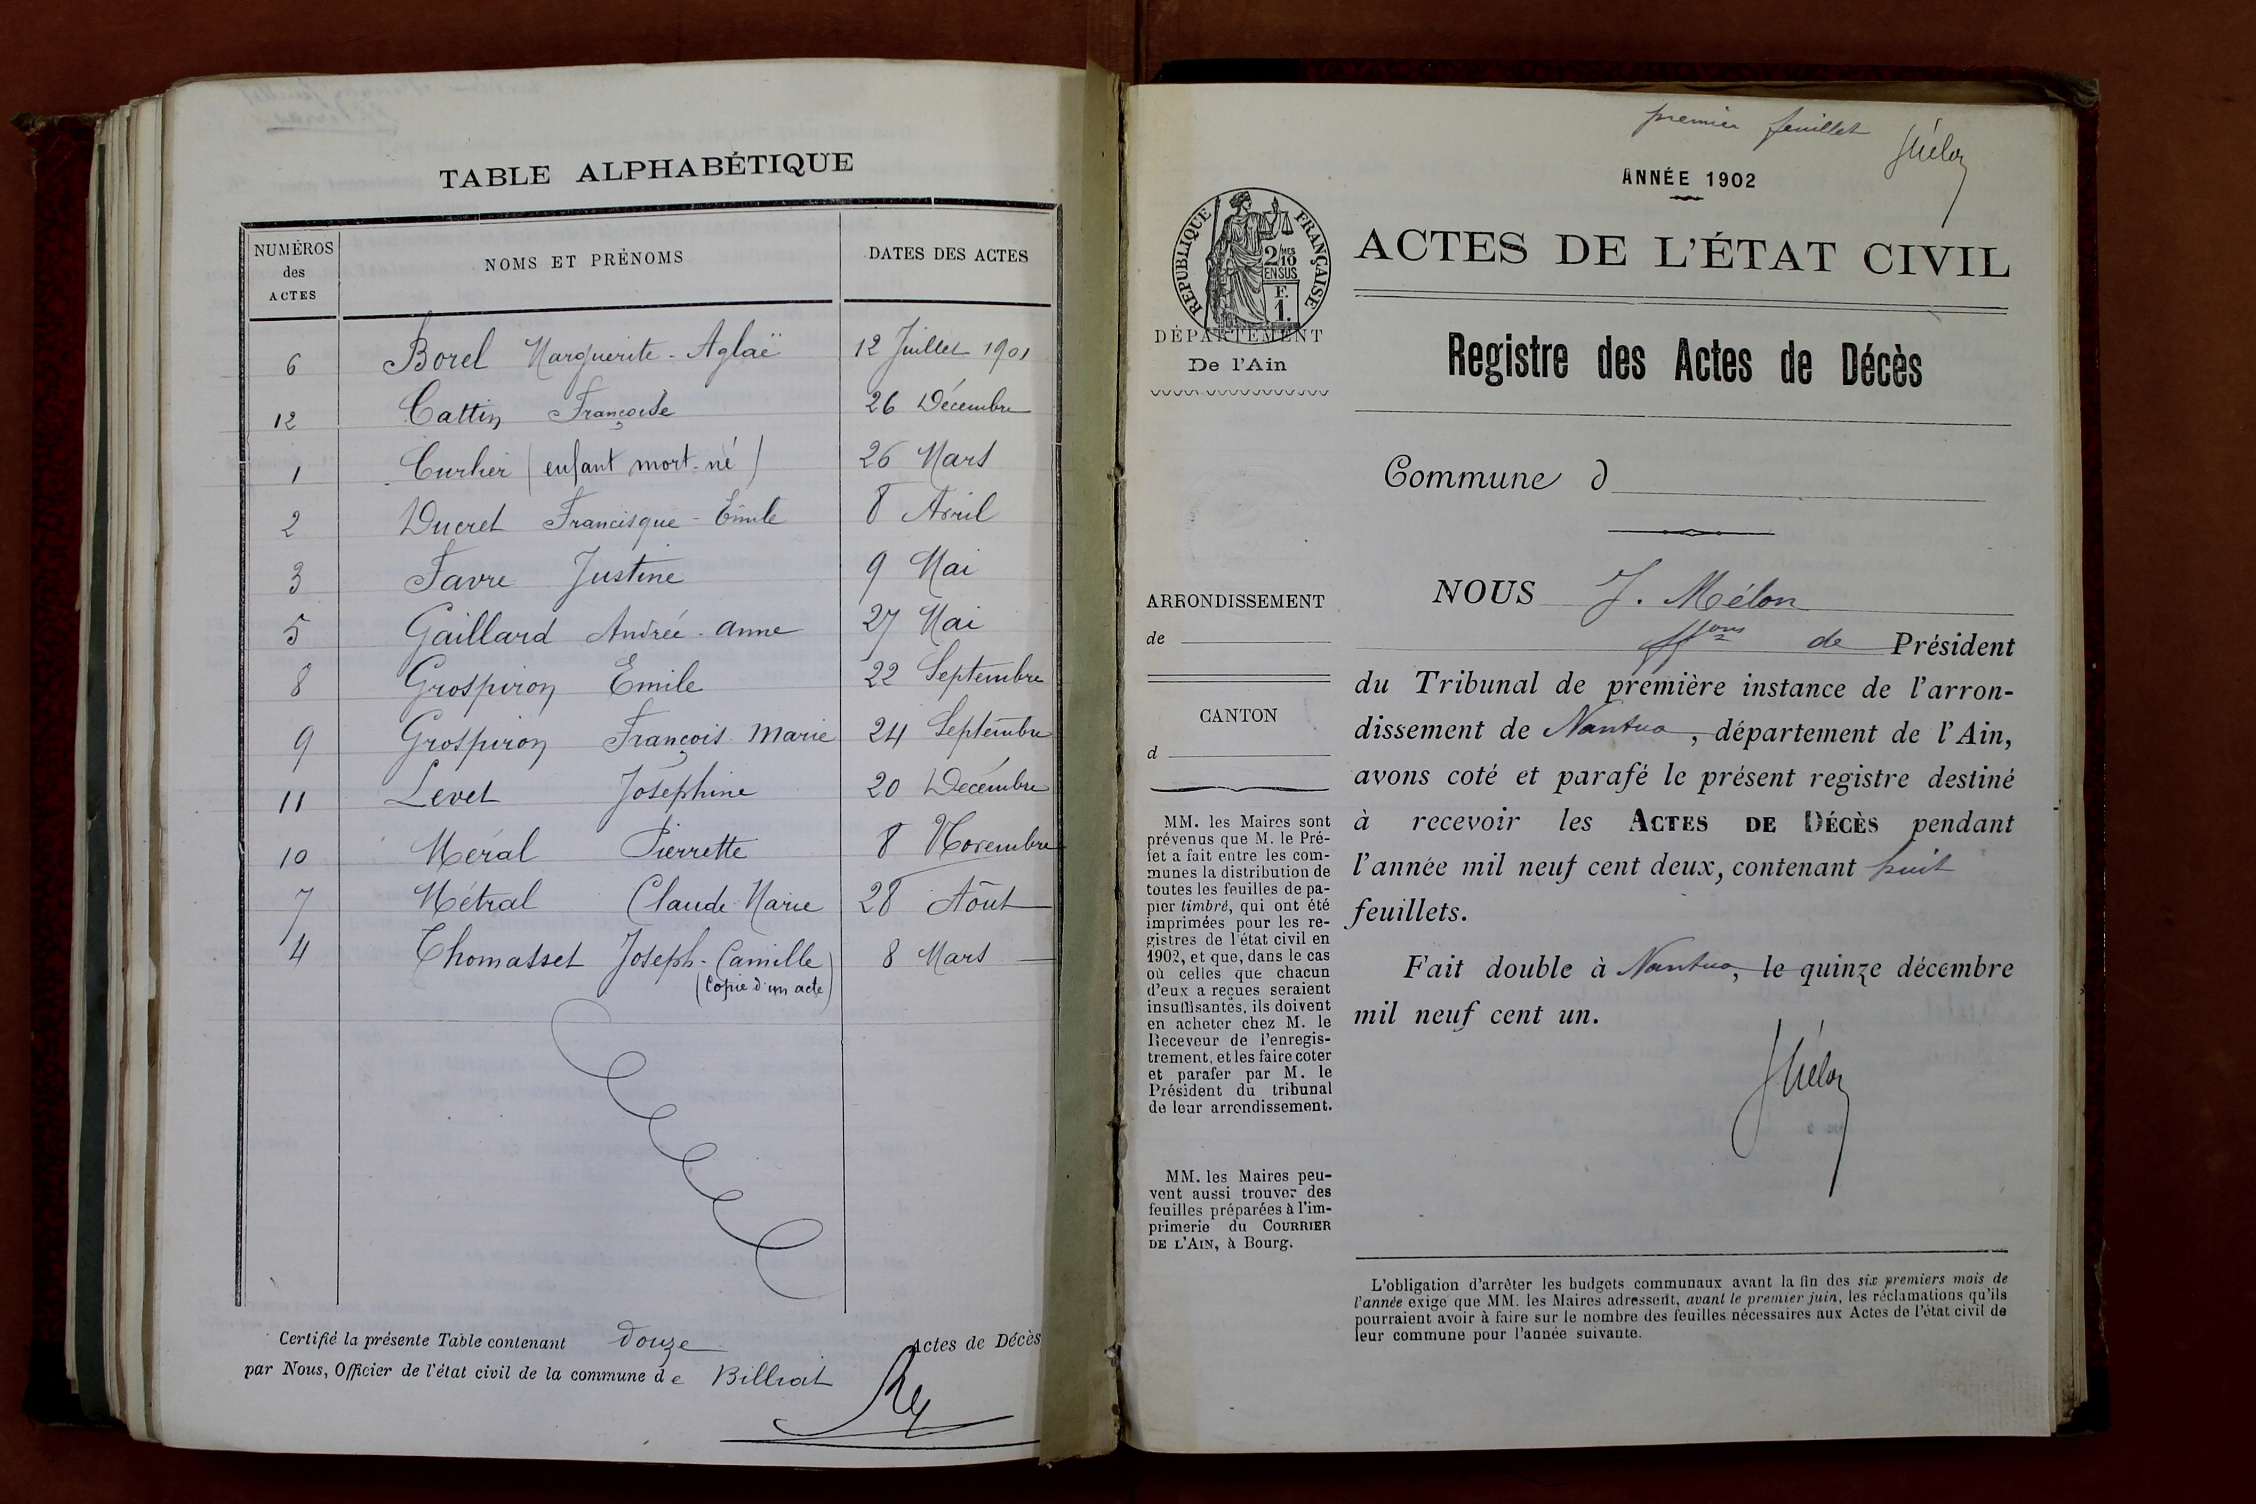 TABLE ALPHABÉTIQUE
NUMÉROS
des
ACTES
NOMS ET PRÉNOMS
DATES DES ACTES
6 Borel Marguerite - Aglaë 12 Juillet 1901
12 Cattin Françoise 26 Décembre
1 Curlier (enfant mort-né) 26 Mars
2 Ducret Francisque - Emile 8 Avril
3 Favre Justine 9 Mai
5 Gaillard Andrée - Anne 27 Mai
8 Grospiron Emile 22 Septembre
9 Grospiron François Marie 24 Septembre
11 Levet Joséphine 20 Décembre
10 Méral Pierrette 8 Novembre
7 Métral Claude Marie 28 Août
4 Thomasset Joseph - Camille 8 Mars
(Copie d'un acte)
Certifié la présente Table contenant douze Actes de Décès
par Nous, Officier de l'état civil de la commune de Billiat
Rey
premier feuillet
JMélon
ANNÉE 1902
ACTES DE L'ÉTAT CIVIL
RÉPUBLIQUE FRANÇAISE
2/10 MES
EN SUS
F.
1.
DÉPARTEMENT
De l'Ain
Registre des Actes de Décès
Commune d
ARRONDISSEMENT
de
CANTON
d
MM. les Maires sont
prévenus que M. le Pré-
fet a fait entre les com-
munes la distribution de
toutes les feuilles de pa-
pier timbré, qui ont été
imprimées pour les re-
gistres de l'état civil en
1902, et que, dans le cas
où celles que chacun
d'eux a reçues seraient
insuffisantes, ils doivent
en acheter chez M. le
Receveur de l'enregis-
trement, et les faire coter
et parafer par M. le
Président du tribunal
de leur arrondissement.
MM. les Maires peu-
vent aussi trouver des
feuilles préparées à l'im-
primerie du COURRIER
DE L'AIN, à Bourg.
NOUS J. Mélon
ffons de Président
du Tribunal de première instance de l'arron-
dissement de Nantua, département de l'Ain,
avons coté et parafé le présent registre destiné
à recevoir les ACTES DE DÉCÈS pendant
l'année mil neuf cent deux, contenant huit
feuillets.
Fait double à Nantua, le quinze décembre
mil neuf cent un.
JMélon
L'obligation d'arrêter les budgets communaux avant la fin des six premiers mois de
l'année exige que MM. les Maires adressent, avant le premier juin, les réclamations qu'ils
pourraient avoir à faire sur le nombre des feuilles nécessaires aux Actes de l'état civil de
leur commune pour l'année suivante.